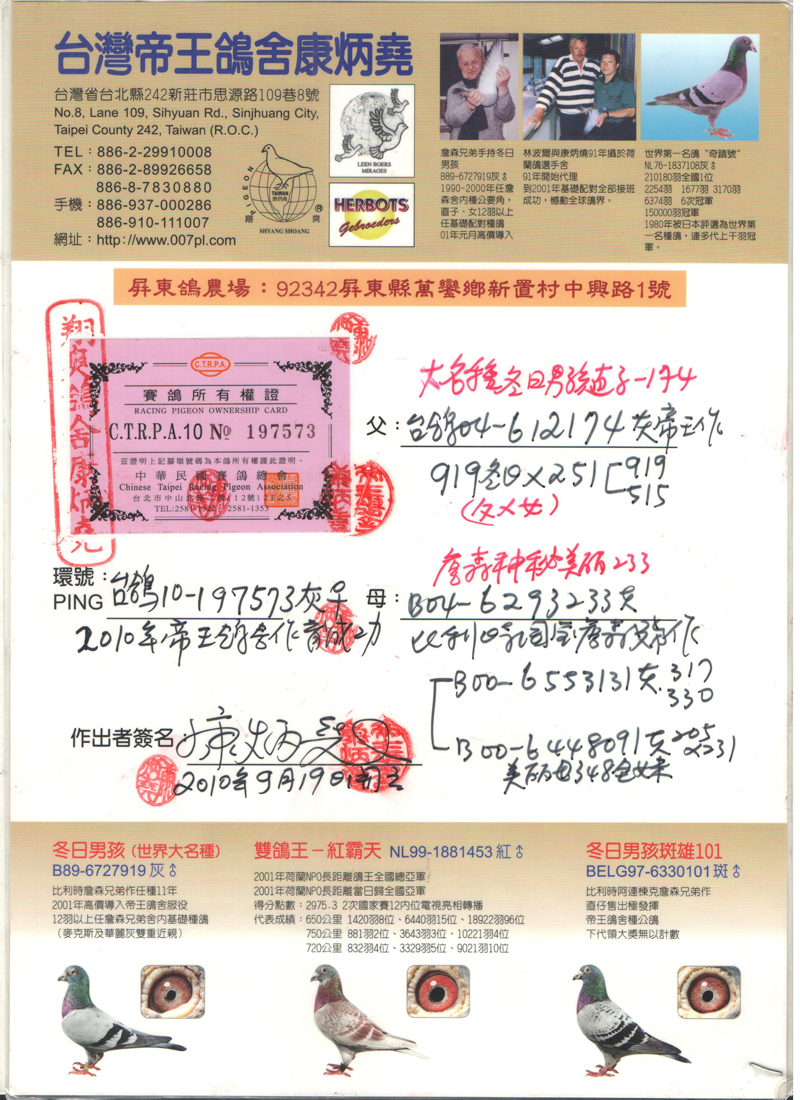 台灣帝王鴿舍康炳堯
台灣省台北縣242新莊市思源路109巷8號
No.8, Lane 109, Sihyuan Rd., Sinjhuang City,
Taipei County 242, Taiwan (R.O.C.)
TEL：886-2-29910008
FAX：886-2-89926658
886-8-7830880
手機：886-937-000286
886-910-111007
網址：http://www.007pl.com
PIGEON
TAIWAN
翔
爽
SHYANG SHOANG
LEEN BOERS
MIRAGES
HERBOTS
Gebroeders
詹森兄弟手持冬日
男孩
B89-6727919灰♂
1990-2000年任詹
森舍內種公要角，
直子、女12羽以上
任基礎配對種鴿
01年元月高價導入
林波爾與康炳燒91年攝於荷
蘭鴿選手舍
91年開始代理
到2001年基礎配對全部接班
成功，憾動全球鴿界。
世界第一名鴿“奇蹟號”
NL76-1837108灰♂
210180羽全國1位
2254羽 1677羽 3170羽
6374羽 6次冠軍
150000羽冠軍
1980年被日本評選為世界第
一名種鴿，連多代上千羽冠
軍。
屏東鴿農場：92342屏東縣萬巒鄉新置村中興路1號
翔爽鴿舍康炳堯
C.T.R.P.A.
賽鴿所有權證
RACING PIGEON OWNERSHIP CARD
C.T.R.P.A.10 No 197573
茲證明上記腳環號碼為本鴿所有權謹此證明。
中華民國賽鴿總會
Chinese Taipei Racing Pigeon Association
大名種冬日男孩直子-174
父：台鴿04-612174灰帝王作
919冬日×251[919
515
(父×女)
環號：
PING 台鴿10-197573灰♀
2010年帝王鴿舍作育成功
詹森种秘美丽233
母：B04-6293233灰
比利时國宝詹森兄弟作
B00-6553131灰.317
330
B00-6448091灰205
x231
美丽女348全妹
作出者簽名：康炳堯
2010年9月19日開立
冬日男孩(世界大名種)
B89-6727919灰♂
比利時詹森兄弟作任種11年
2001年高價導入帝王鴿舍服役
12羽以上任詹森兄弟舍內基礎種鴿
(麥克斯及華麗灰雙重近親)
雙鴿王－紅霸天 NL99-1881453 紅♂
2001年荷蘭NPO長距離鴿王全國總亞軍
2001年荷蘭NPO長距離當日歸全國亞軍
得分點數：2975.3 2次國家賽12內位電視亮相轉播
代表成績：650公里 1420羽8位、6440羽15位、18922羽96位
750公里 881羽2位、3643羽3位、10221羽4位
720公里 832羽4位、3329羽5位、9021羽10位
冬日男孩斑雄101
BELG97-6330101斑♂
比利時阿連棟克詹森兄弟作
直仔售出極發揮
帝王鴿舍種公鴿
下代領大獎無以計數